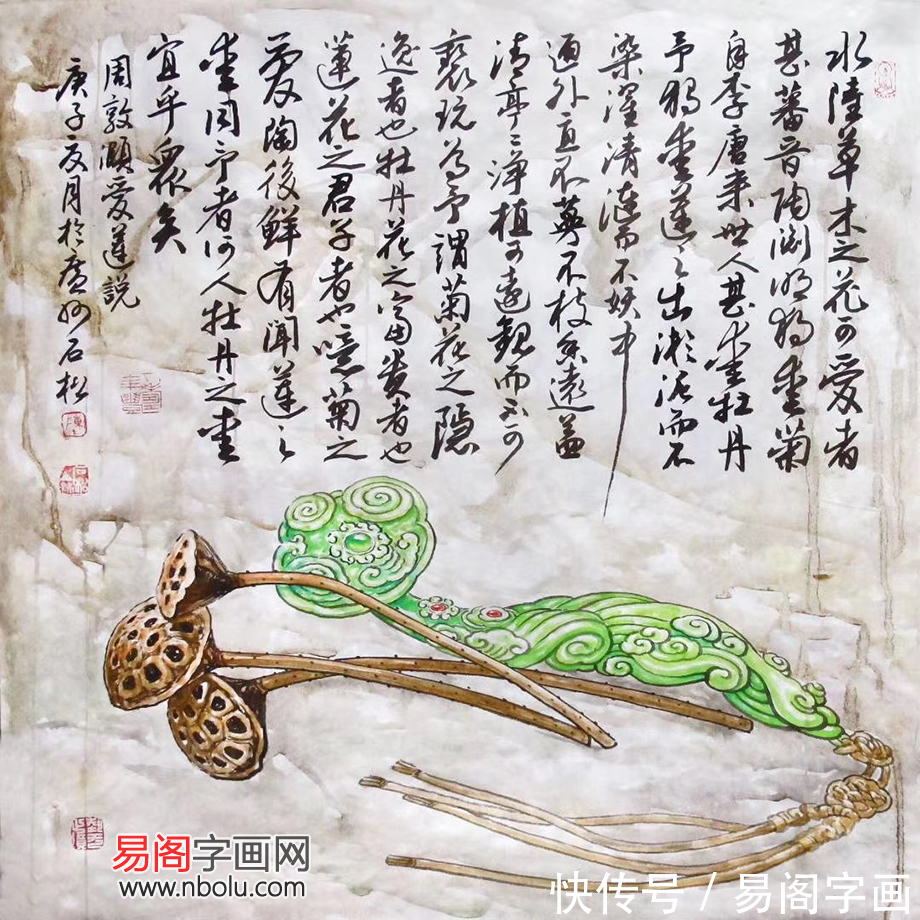 水陸草木之花可愛者
甚蕃晋陶渊明独爱菊
自李唐来世人甚爱牡丹
予独爱蓮之出淤泥而不
染濯清漣而不妖中
通外直不蔓不枝香遠益
清亭亭净植可遠觀而不可
褻玩焉予謂菊花之隐
逸者也牡丹花之富贵者也
蓮花之君子者也噫菊之
愛陶後鮮有聞蓮之
爱同予者何人牡丹之爱
宜乎眾矣
周敦頤愛蓮説
庚子夏月於廬州石松
易阁字画网
www.nbolu.com
快传号 / 易阁字画